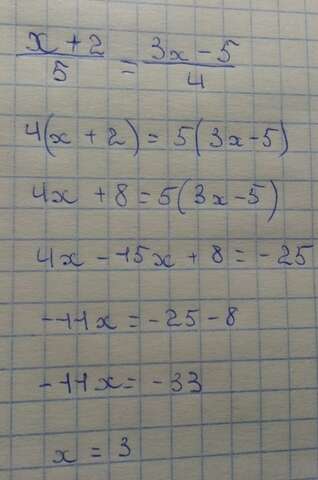 x + 2 / 5 = 3x - 5 / 4
4(x + 2) = 5(3x-5)
4x + 8 = 5(3x-5)
4x - 15x + 8 = -25
-11x = -25 - 8
-11x = -33
x = 3